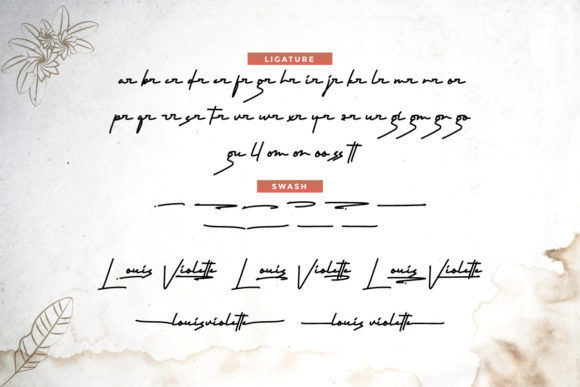 LIGATURE
ar br cr dr er fr gr hr ir jr kr lr mr nr or
pr qr rr sr tr vr wr xr yr zr ur gi gm gn go
gu ll om on oo ss tt
SWASH
Louis Violette Louis Violette Louis Violette
louisviolette louis violette